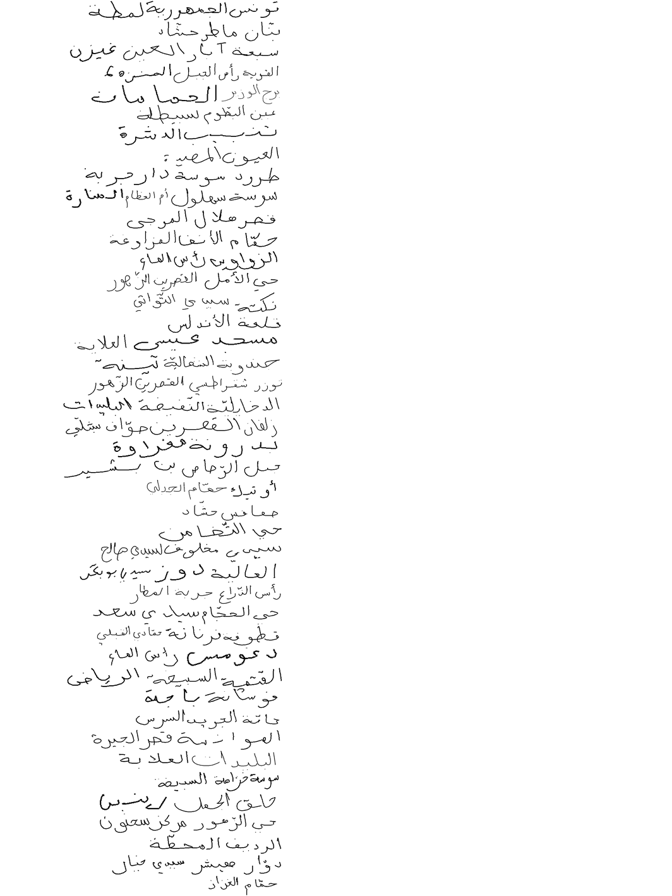 تونس الجمهورية لمطة
بنان ماطر حشاد
سبعة آبار العين غيزن
القرية رأس الجبل المنزه 7
برج الوزير الحمامات
عين البطوم سبيطلة
تنبيب الدشرة
العيون المضيلة
طرود سوسة دار جربة
سوسة سهلول أم العظام المنارة
قصر هلال المرجى
حمّام الأنف القراوعة
الزواوين رأس الماء
حي الأمل القصرين الزهور
نكتة سيدي التواتي
قلعة الأندلس
مسجد عيسى العلاية
حندوبة الشعالية تينجة
توزر شقراطمي القصرين الزّهور
الدخايلية النفيضة البليدات
زلفان القصرين حوّاف
بدرونة مغراوة
جبل الرّصاص بن بشير
أوتيك حمّام الجدلي
صفاقس حشاد
حي التّضامن
سيدي مخلوف لسيدي صالح
العالية دوز سيدي بوبكر
رأس الذّراع جربة المطار
حي الحجّام سيدي سعد
قطوفة فرنانة قبلي
دغومس رأس الماء
القتمية السبيخة الرياض
فوسانة باجة
حاتة الجريد السرس
الهوانية قصر الجيرة
البليدات العلاية
سوسة خزامة السبيخة
حلق الجمل
حي الزهور مركز سحنون
الرديف المحطّة
دوّار هيشر سيدي
حمّام الغزاز